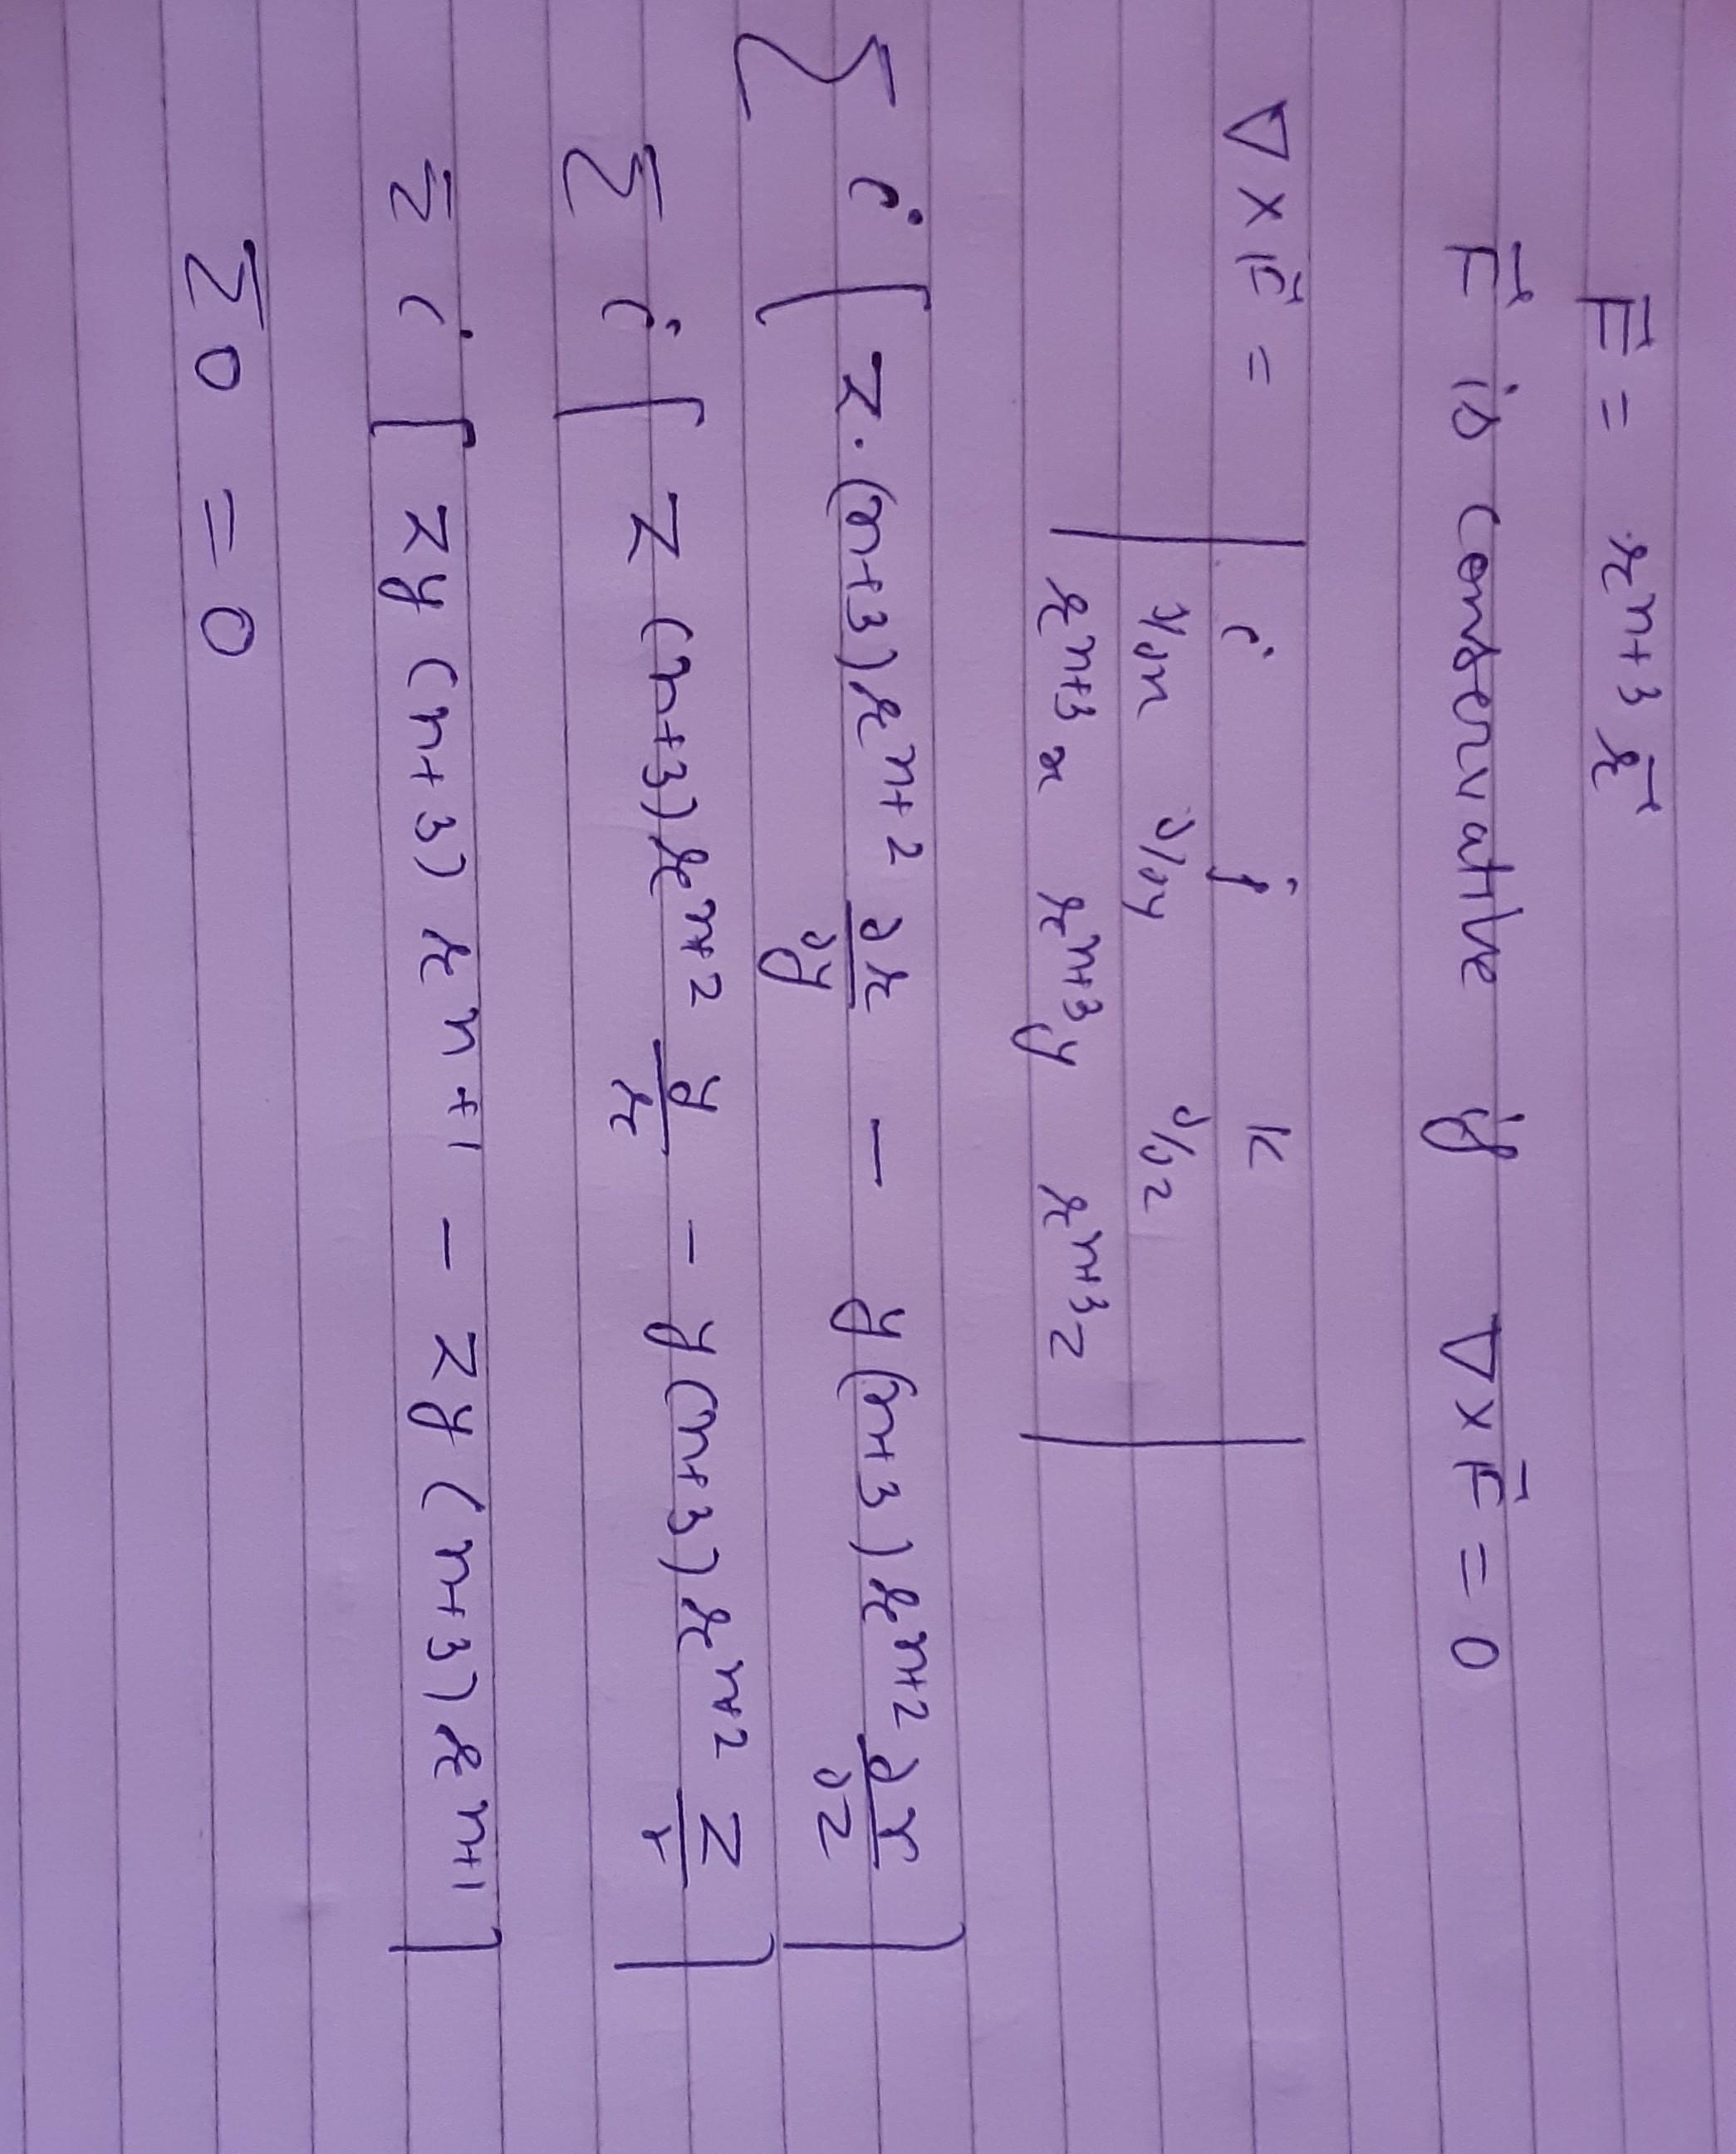 F̄ = r^{n+3} r̄
F̄ is conservative if ∇ × F̄ = 0
∇ × F̄ = | i j k
∂/∂x ∂/∂y ∂/∂z
r^{n+3} x r^{n+3} y r^{n+3} z |
∑ i [ z · (n+3) r^{n+2} ∂r/∂y − y (n+3) r^{n+2} ∂r/∂z ]
∑ i [ z (n+3) r^{n+2} y/r − y (n+3) r^{n+2} z/r ]
∑ i [ zy (n+3) r^{n+1} − zy (n+3) r^{n+1} ]
∑ 0 = 0